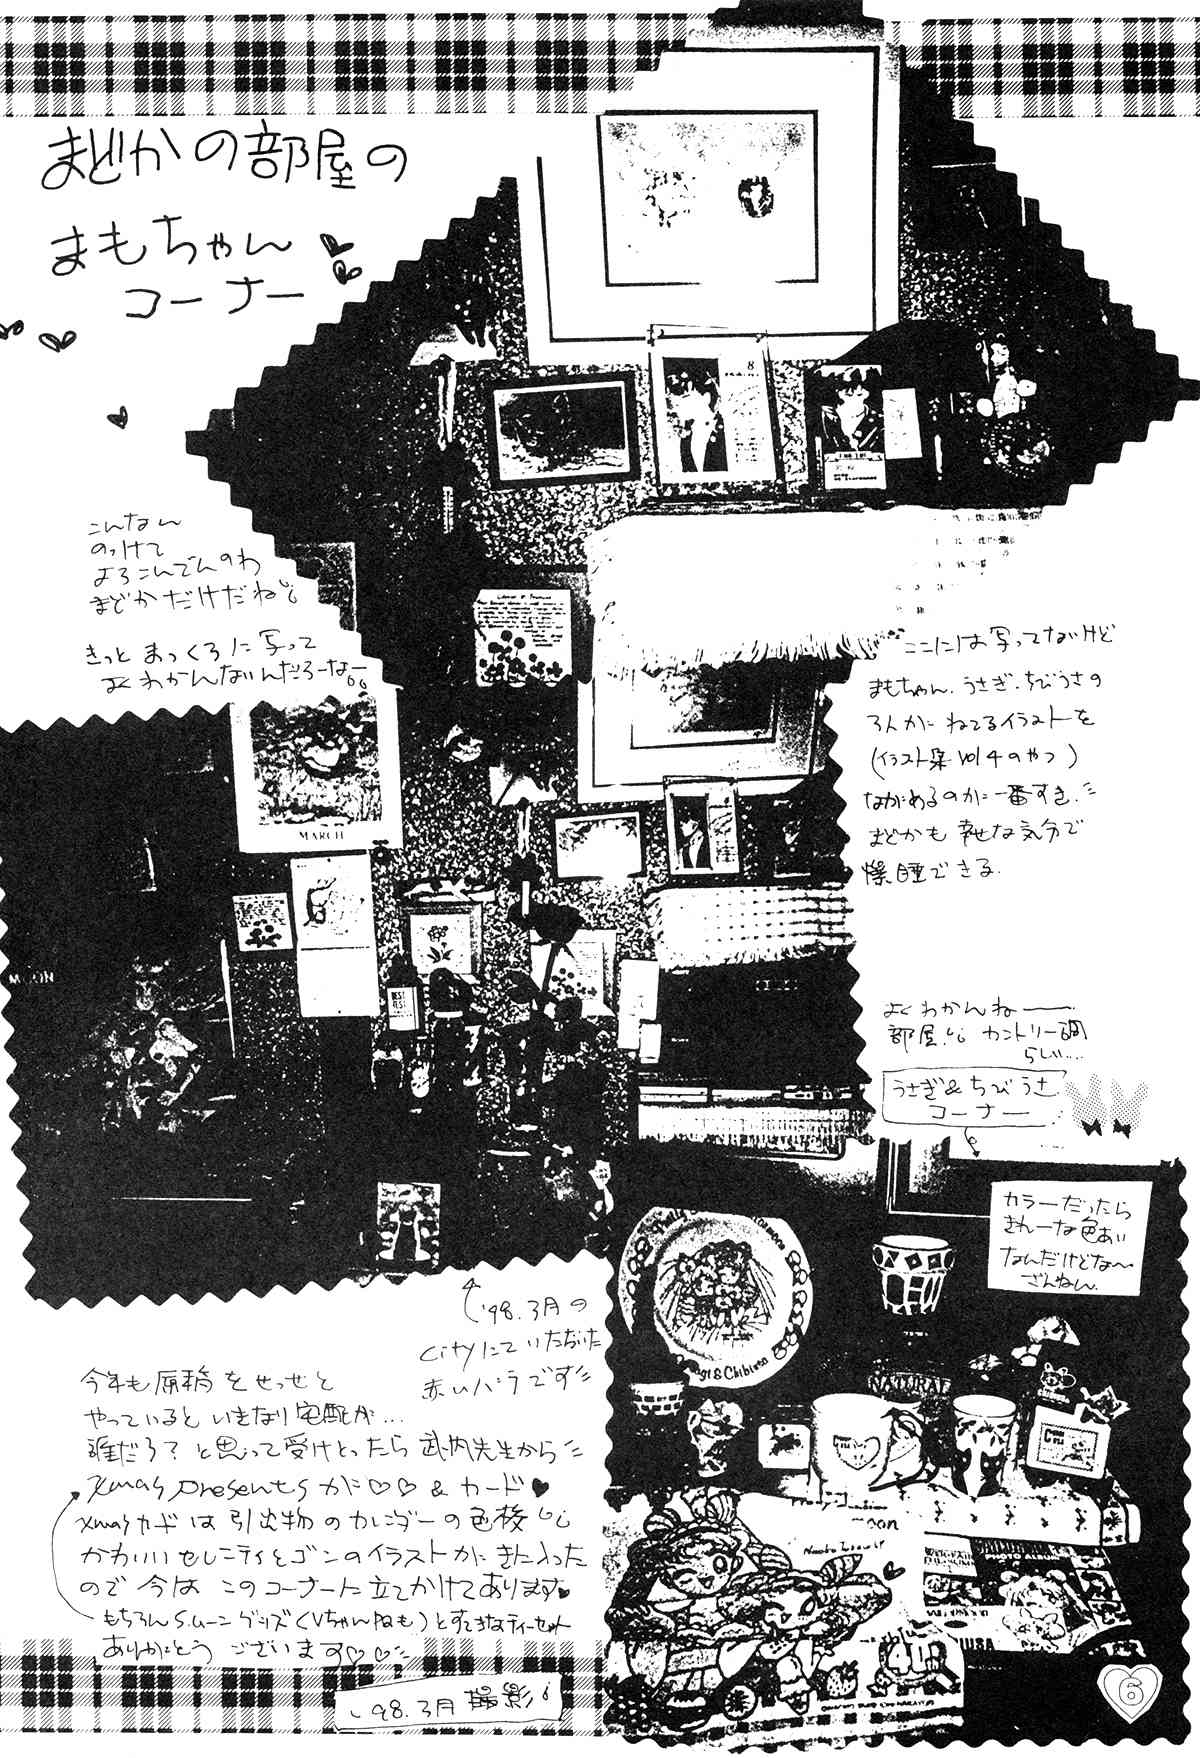 まどかの部屋の
まもちゃん
コーナー
こんなん
のっけて
よろこんでんのわ
まどかだけだね
きっと まっくろに 写って
よくわかんないんだろーなー
8
MARCH
MOON
BEST
ここには写ってないけど
まもちゃん、うさぎ、ちびうさの
3人がねてるイラストを
(イラスト集 vol 4 のやつ)
ながめるのが一番すき.
まどかも 幸せな気分で
爆睡できる.
よくわかんねー
部屋. カントリー調
らしい....
うさぎ&ちびうさ
コーナー
カラーだったら
きれーな色あい
なんだけどな〜
ざんねん.
'98.3月の
cityにていただいた
赤いバラです
& Chibiusa
NATURAL
moon
PHOTO ALBUM
今年も原稿をせっせと
やっていると いきなり宅配が...
誰だろ? と思って受けとったら 武内先生から
Xmas Presents が♡♡ & カード♥
Xmasカードは 引出物のカレンダーの色校
かわいいセレニティとゴンのイラストが きに入った
ので 今は このコーナーに 立てかけてあります♥
もちろん S.ムーングッズ(Vちゃんねも)とすてきなティーセット
ありがとう ございます♡♡
'98.3月 撮影
6